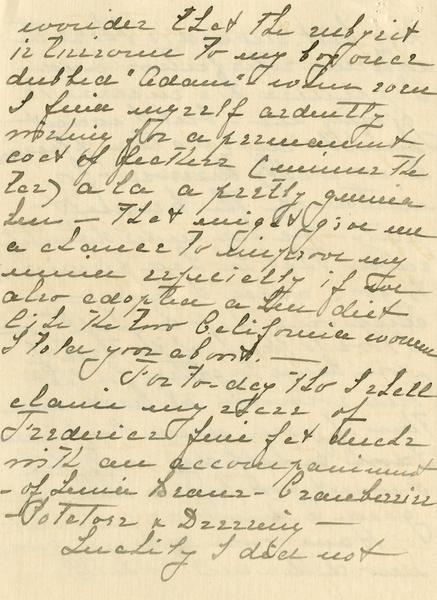 wonder that the subject
is tiresome to my boy once
dubbed "Adam" when soon
I find myself ardently
wishing for a permanent
coat of feathers (minus the
tar) a la a pretty guinea
hen - That might give me
a chance to improve my
mind especially if we
also adopted a hen diet
like the two California women
I told you about. -
For to-day tho I shall
claim my share of
Fredericks fine fat ducks
with an accompaniment
- of Lima Beans - Cranberries
- Potatoes & Dressing -
Luckily I did not